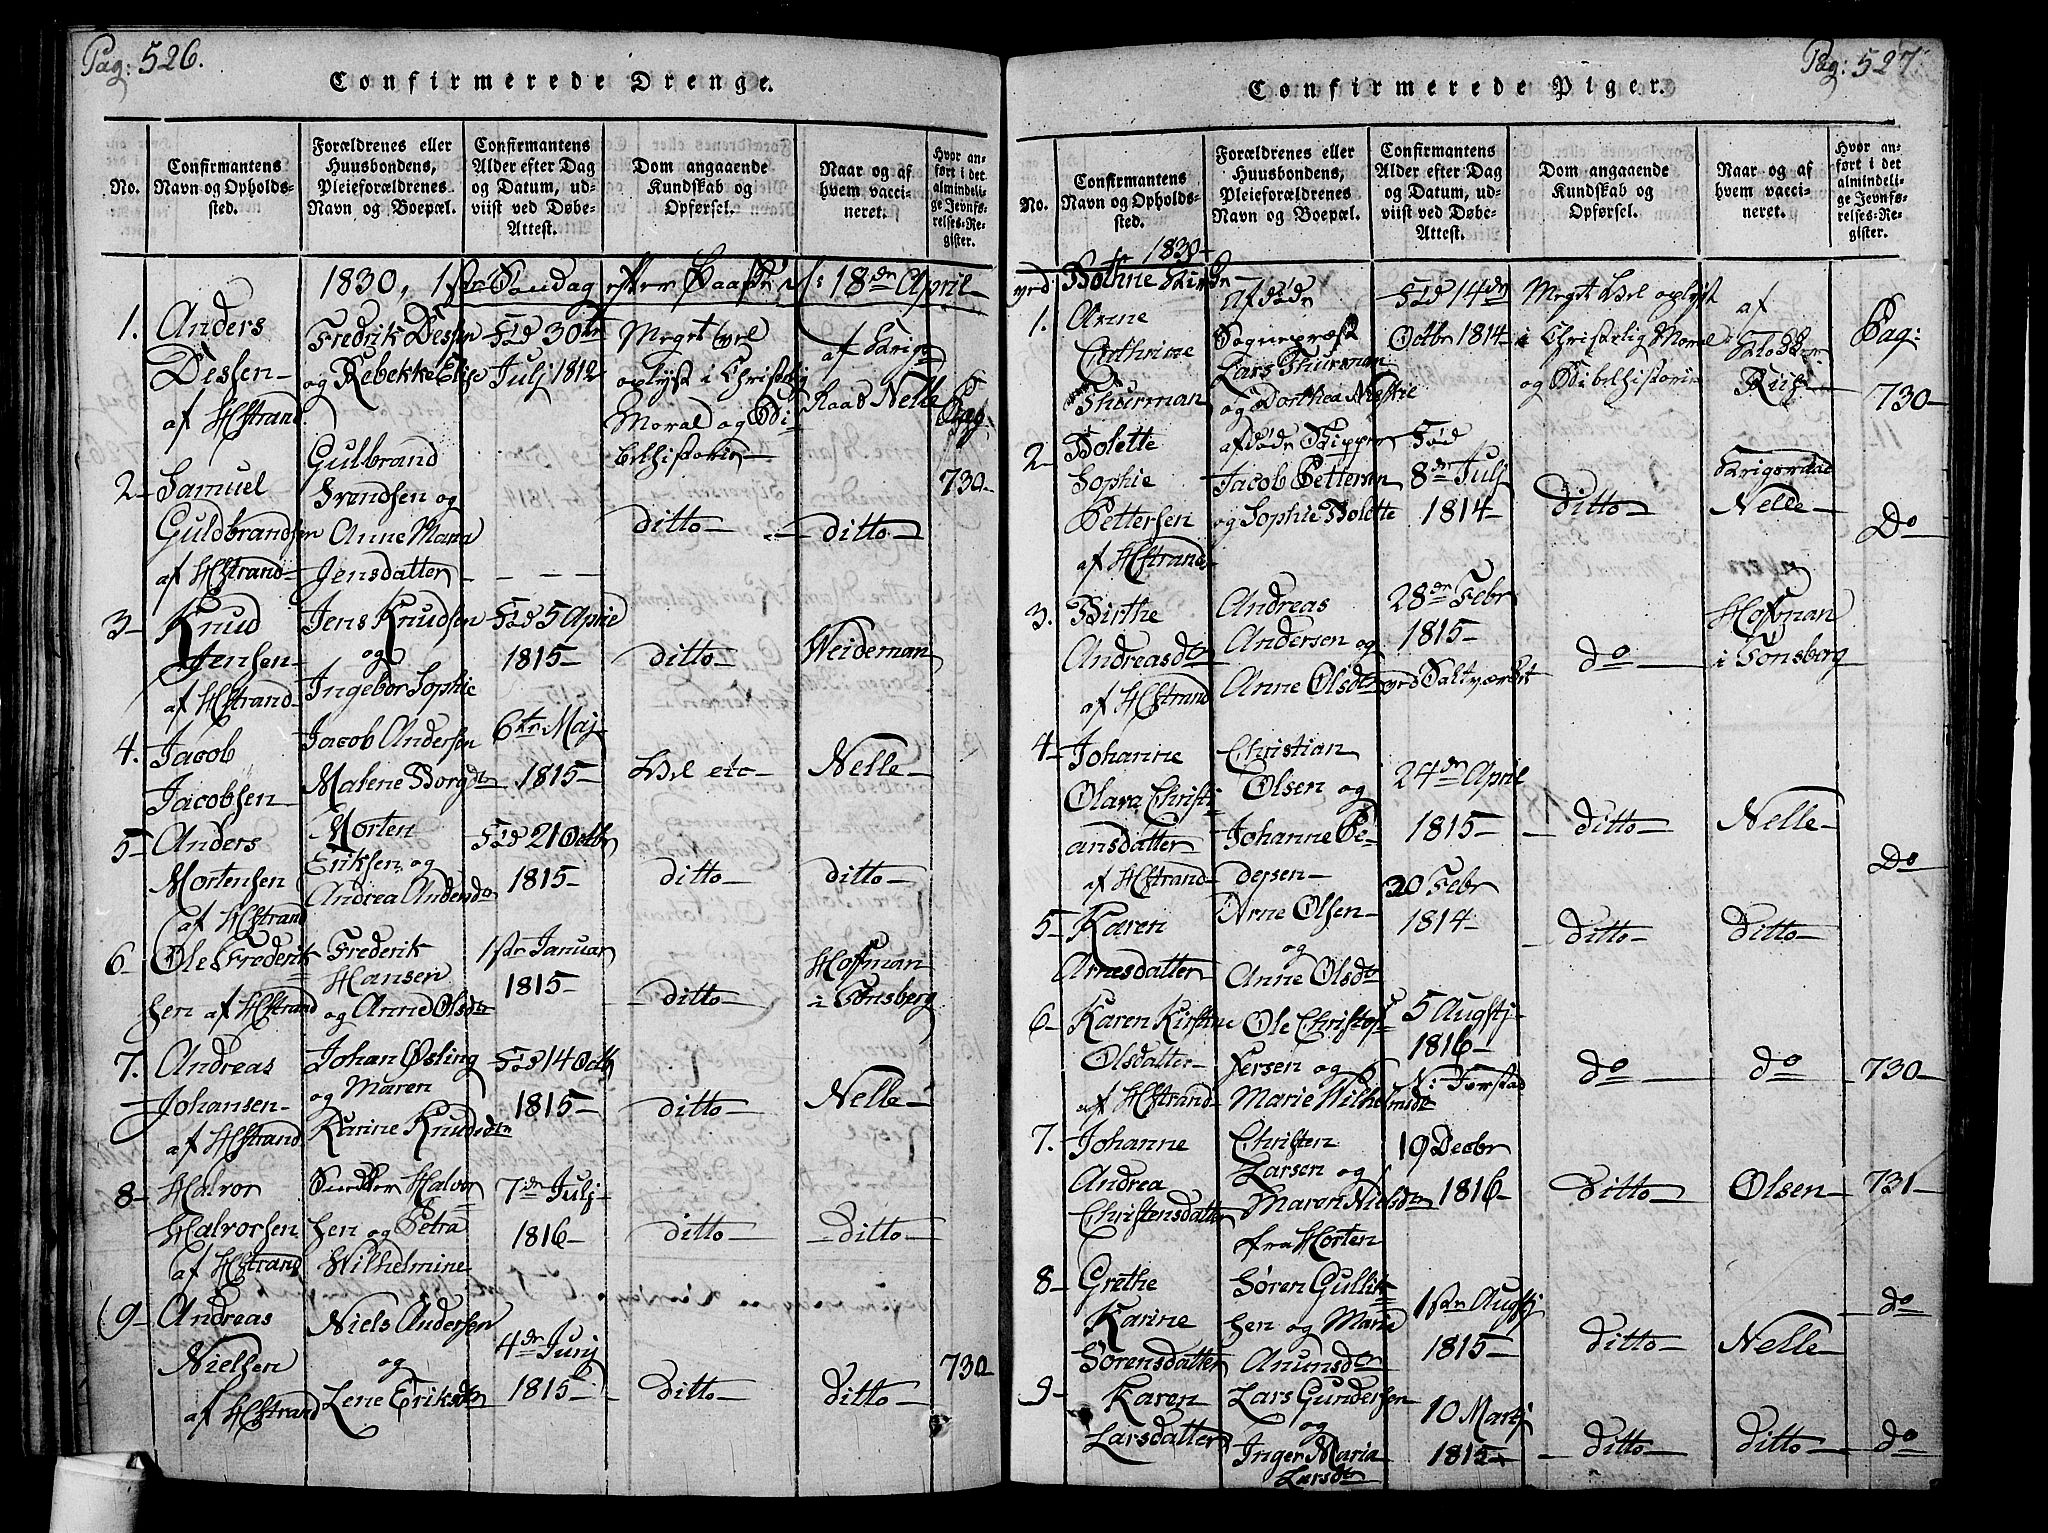 Pag: 526.
Confirmerede Drenge.
No.
Confirmantens
Navn og Opholds-
sted.
Forældrenes eller
Huusbondens,
Pleieforældrenes
Navn og Boepæl.
Confirmantens
Alder efter Dag
og Datum, ud-
viist ved Døbe-
Attest.
Dom angaaende
Kundskab og
Opførsel.
Naar og af
hvem vacci-
neret.
Hvor an-
ført i det
almindeli-
ge Jevnfø-
relses-Re-
gister.
1830, 1ste Søndag efter Paaske 18de April
1. Anders
Dessen
af HStrand
Fredrik Dessen
og Rebekke Elise
Fød 30te
Julj 1812
Meget vel
oplyst i Christelig
Moral og Bi-
belhistorie
af
Raab Nelle
Pag:
2 Samuel
Guldbrandsen
af HStrand
Gulbrand
Svendsen og
Anne Maria
Jensdatter
ditto
ditto
730
3 Knud
Jensen
af HStrand
Jens Knudsen
og
Ingebor Sophie
Fød 5 Aprie
1815
ditto
Weideman
4. Jacob
Jacobsen
Jacob Andersen
Malene Borgdtr
6te Maj
1815
Vel etc
Nelle
5 Anders
Mortensen
af HStrand
Morten
Eriksen og
Andrea Andersdtr
Fød 21 Octbr
1815
ditto
ditto
6 Ole Frederik
sen af HStrand
Frederik
Hansen
og Anne Olsdtr
1ste Januar
1815
ditto
Hofman
i Tønsberg
7. Andreas
Johansen
af HStrand
Johan Øsling
og Maren
Karine Knudsdtr
Fød 14 Octb
1815
ditto
Nelle
8 Halvor
Halvorsen
af HStrand
Halvor
sen og Petra
Wilhelmine
7de Julj
1816
ditto
ditto
9 Andreas
Nielsen
af HStrand
Niels Andersen
og
Lene Eriksdtr
4de Junj
1815
ditto
ditto
730
Pag: 527
Confirmerede Piger.
No.
Confirmantens
Navn og Opholds-
sted.
Forældrenes eller
Huusbondens,
Pleieforældrenes
Navn og Boepæl.
Confirmantens
Alder efter Dag
og Datum, ud-
viist ved Døbe-
Attest.
Dom angaaende
Kundskab og
Opførsel.
Naar og af
hvem vacci-
neret.
Hvor an-
ført i det
almindeli-
ge Jevnfø-
relses-Re-
gister.
1830
ved Bothne Kirke
1. Anne
Cathrine
Thurman
Afdøde
Sognepræst
Lars Thurman
og Dorthea
Fød 14de
Octbr 1814
Meget Vel oplyst
i Christelig Moral
og Bibelhistorie
af
Pag:
730
2 Bolette
Sophie
Pettersen
af HStrand
afdøde Skipper
Jacob Petterson
og Sophie Bolette
Fød
8de Julj
1814
ditto
Nelle
Do
3. Birthe
Andreasdtr
af HStrand
Andreas
Andersen og
Anne Olsdtr
28de Febr
1815
ved Saltværket
do
Hofman
i Tønsberg
4 Johanne
Olava Christi
ansdatter
af HStrand
Christian
Olsen og
Johanne Pe-
dersen
24de April
1815
ditto
Nelle
Do
5 Karen
Arnesdatter
Arne Olsen
og
Anne Olsdtr
20 Febr
1814
ditto
ditto
6 Karen Kirstine
Olsdatter
af HStrand
Ole Christof-
fersen og
Marie Wilhelmsdtr
5 Augstj
1816
do
do
730
7. Johanne
Andrea
Christensdatter
Christen
Larsen og
Maren Nielsdtr
fra Horten
19 Decbr
1816
ditto
Olsen
731
8 Grethe
Karine
Sørensdatter
Søren Gullik
sen og Marie
Anunsdtr
1ste Augstj
1815
ditto
Nelle
do
9 Karen
Larsdatter
Lars Gundersen
og
Inger Maria
Larsdtr
10 Martj
1815
ditto
ditto
do